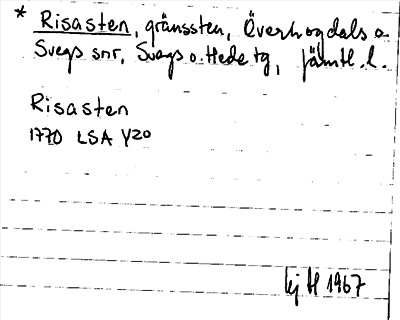 * Risasten, gränssten, Överhogdals o.
Svegs snr, Svegs o. Hede tg, Jämtl. l.
Risasten
1770 LSA Y20
ej H 1967